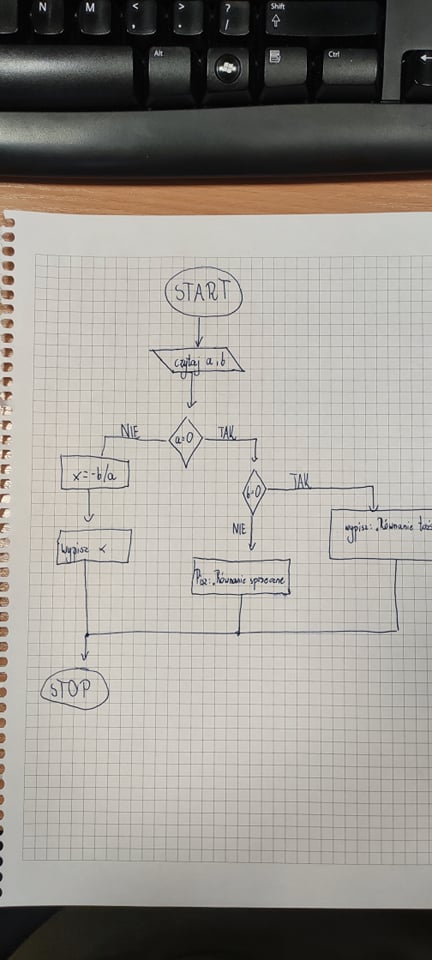 N M < , > . ? / Shift
Alt Ctrl
START
czytaj a,b
NIE a=0 TAK
x=-b/a
b=0 TAK
NIE
wypisz: „Równanie
Wypisz x
Pisz: „Równanie sprzeczne
STOP